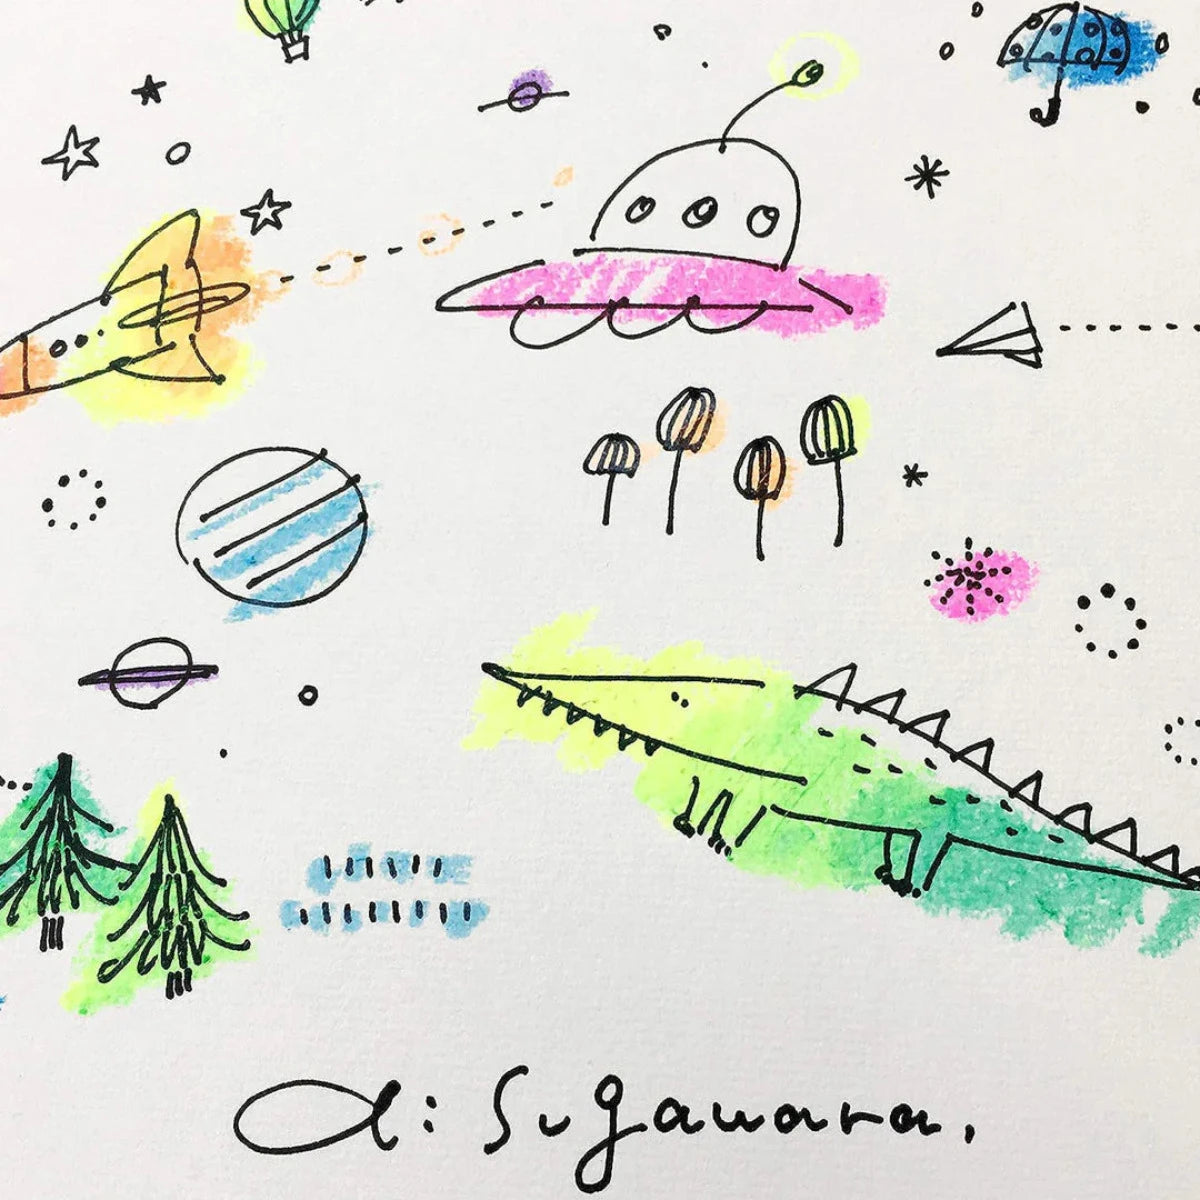 a: Sugawara.